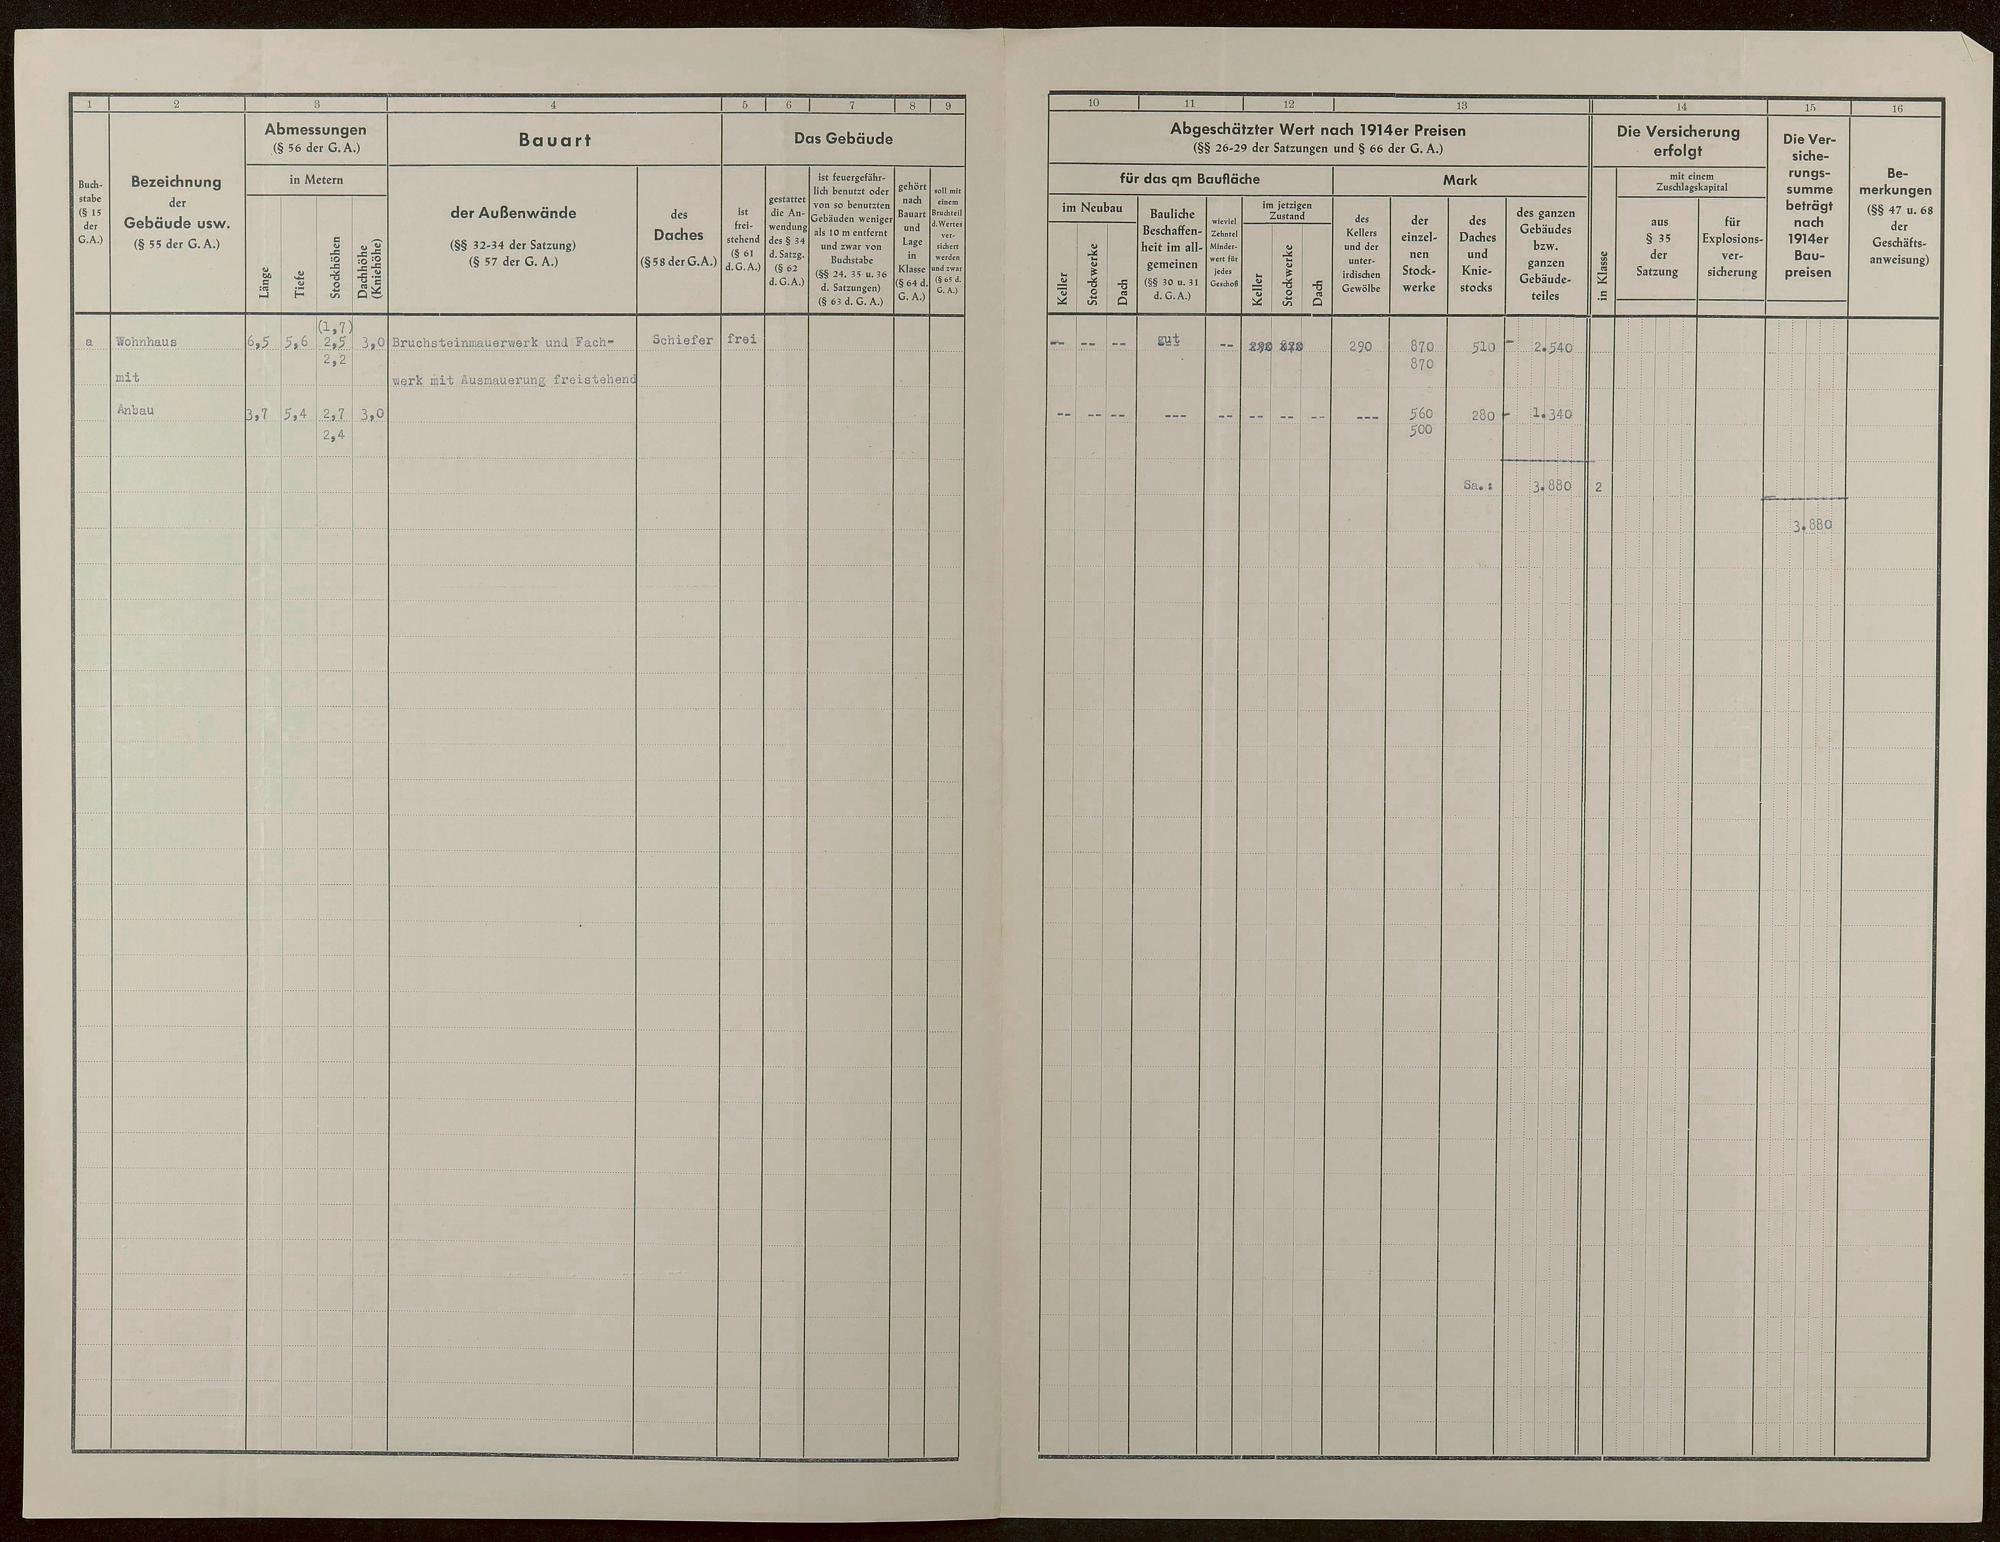 1 2 3 4 5 6 7 8 9
Buch-
stabe
(§ 15
der
G.A.)
Bezeichnung
der
Gebäude usw.
(§ 55 der G. A.)
Abmessungen
(§ 56 der G. A.)
in Metern
Länge
Tiefe
Stockhöhen
Dachhöhe
(Kniehöhe)
Bauart
der Außenwände
(§§ 32-34 der Satzung)
(§ 57 der G. A.)
des
Daches
(§ 58 der G. A.)
Das Gebäude
ist
frei-
stehend
(§ 61
d. G. A.)
gestattet
die An-
wendung
des § 34
d. Satzg.
(§ 62
d. G. A.)
ist feuergefähr-
lich benutzt oder
von so benutzten
Gebäuden weniger
als 10 m entfernt
und zwar von
Buchstabe
(§§ 24, 35 u. 36
d. Satzungen)
(§ 63 d. G. A.)
gehört
nach
Bauart
und
Lage
in
Klasse
(§ 64 d.
G. A.)
soll mit
einem
Bruchteil
d. Wertes
ver-
sichert
werden
und zwar
(§ 65 d.
G. A.)
(1,7)
a Wohnhaus 6,5 5,6 2,5 3,0 Bruchsteinmauerwerk und Fach- Schiefer frei
2,2
mit werk mit Ausmauerung freistehend
Anbau 3,7 5,4 2,7 3,0
2,4
10 11 12 13 14 15 16
Abgeschätzter Wert nach 1914er Preisen
(§§ 26-29 der Satzungen und § 66 der G. A.)
für das qm Baufläche
Mark
im Neubau
Keller
Stockwerke
Dach
Bauliche
Beschaffen-
heit im all-
gemeinen
(§§ 30 u. 31
d. G. A.)
wieviel
Zehntel
Minder-
wert für
jedes
Geschoß
im jetzigen
Zustand
Keller
Stockwerke
Dach
des
Kellers
und der
unter-
irdischen
Gewölbe
der
einzel-
nen
Stock-
werke
des
Daches
und
Knie-
stocks
des ganzen
Gebäudes
bzw.
ganzen
Gebäude-
teiles
Die Versicherung
erfolgt
in Klasse
mit einem
Zuschlagskapital
aus
§ 35
der
Satzung
für
Explosions-
ver-
sicherung
Die Ver-
siche-
rungs-
summe
beträgt
nach
1914er
Bau-
preisen
Be-
merkungen
(§§ 47 u. 68
der
Geschäfts-
anweisung)
-- -- -- gut -- 290 870 510 - 2.540
870
-- -- -- --- -- -- -- -- --- 560 280 - 1.340
500
Sa.: 3.880 2
3.880